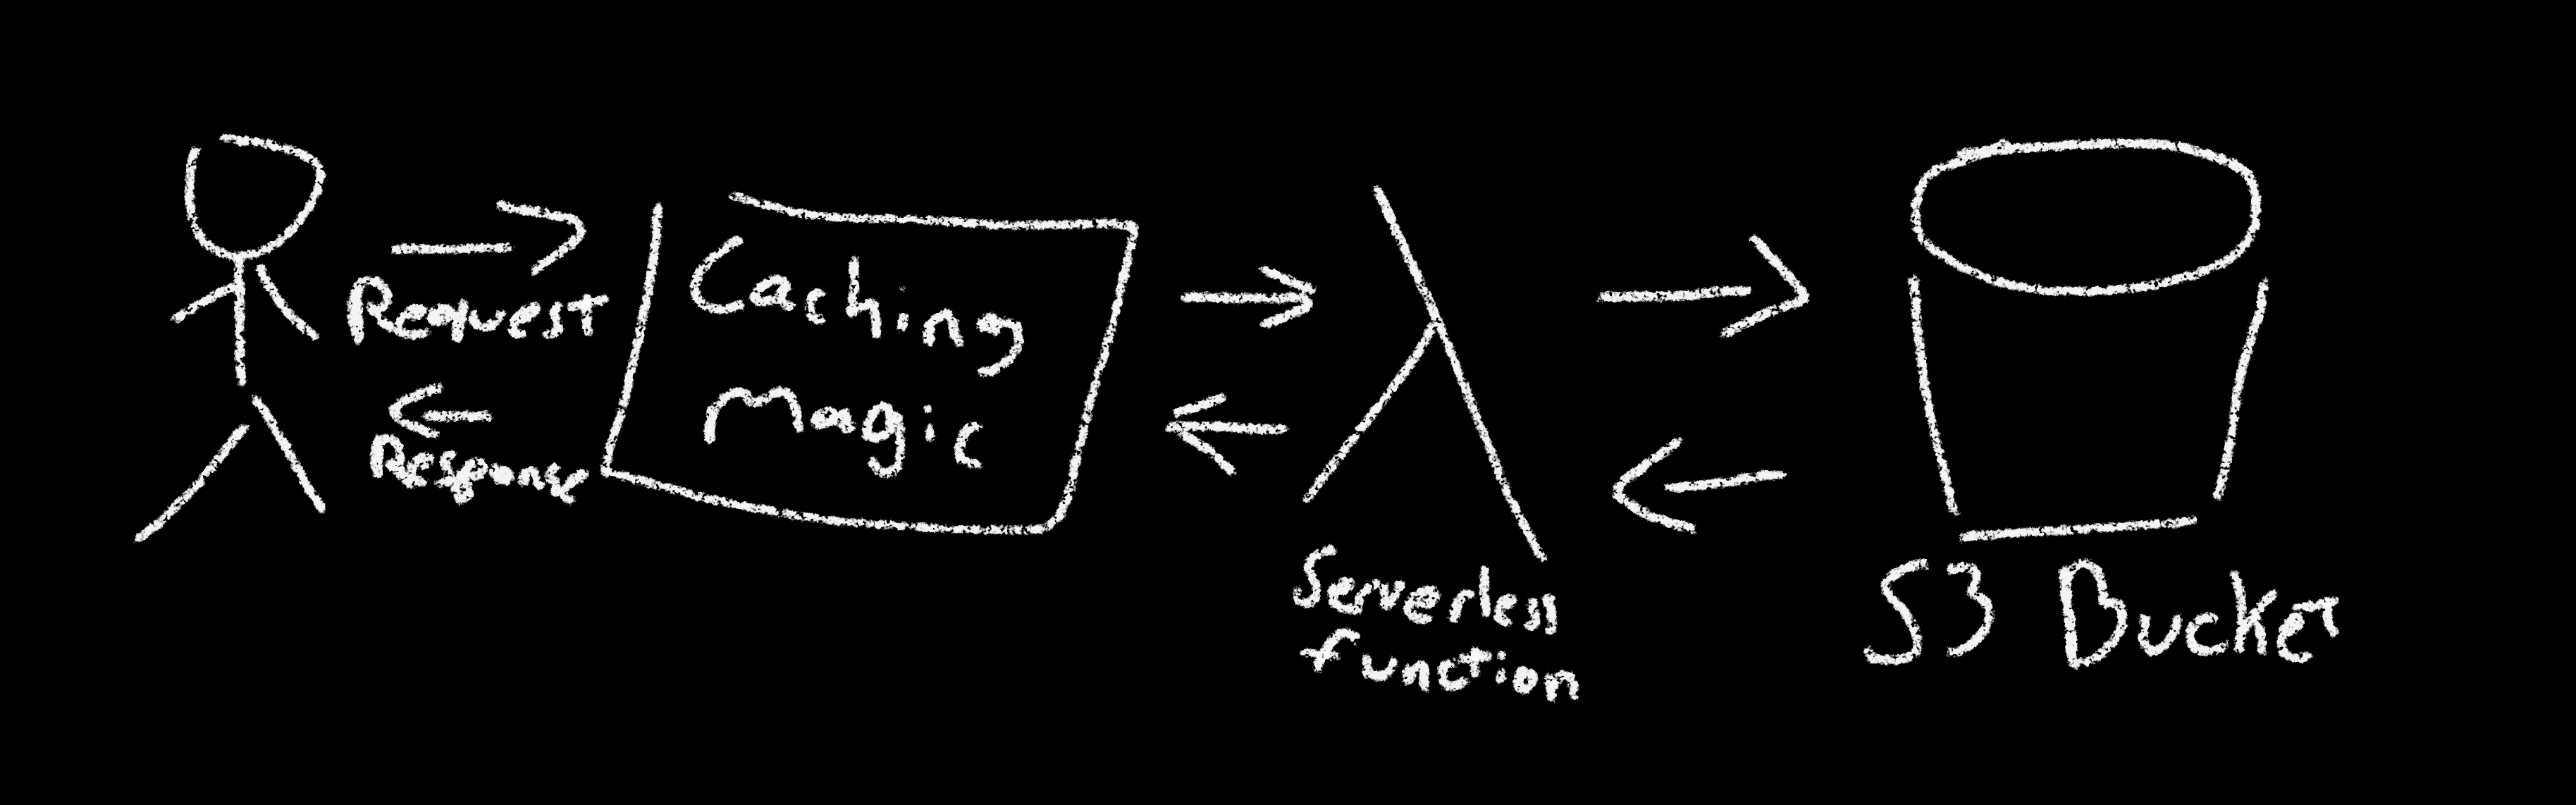 Request
Response
Caching
Magic
Serverless
function
S3 Bucket